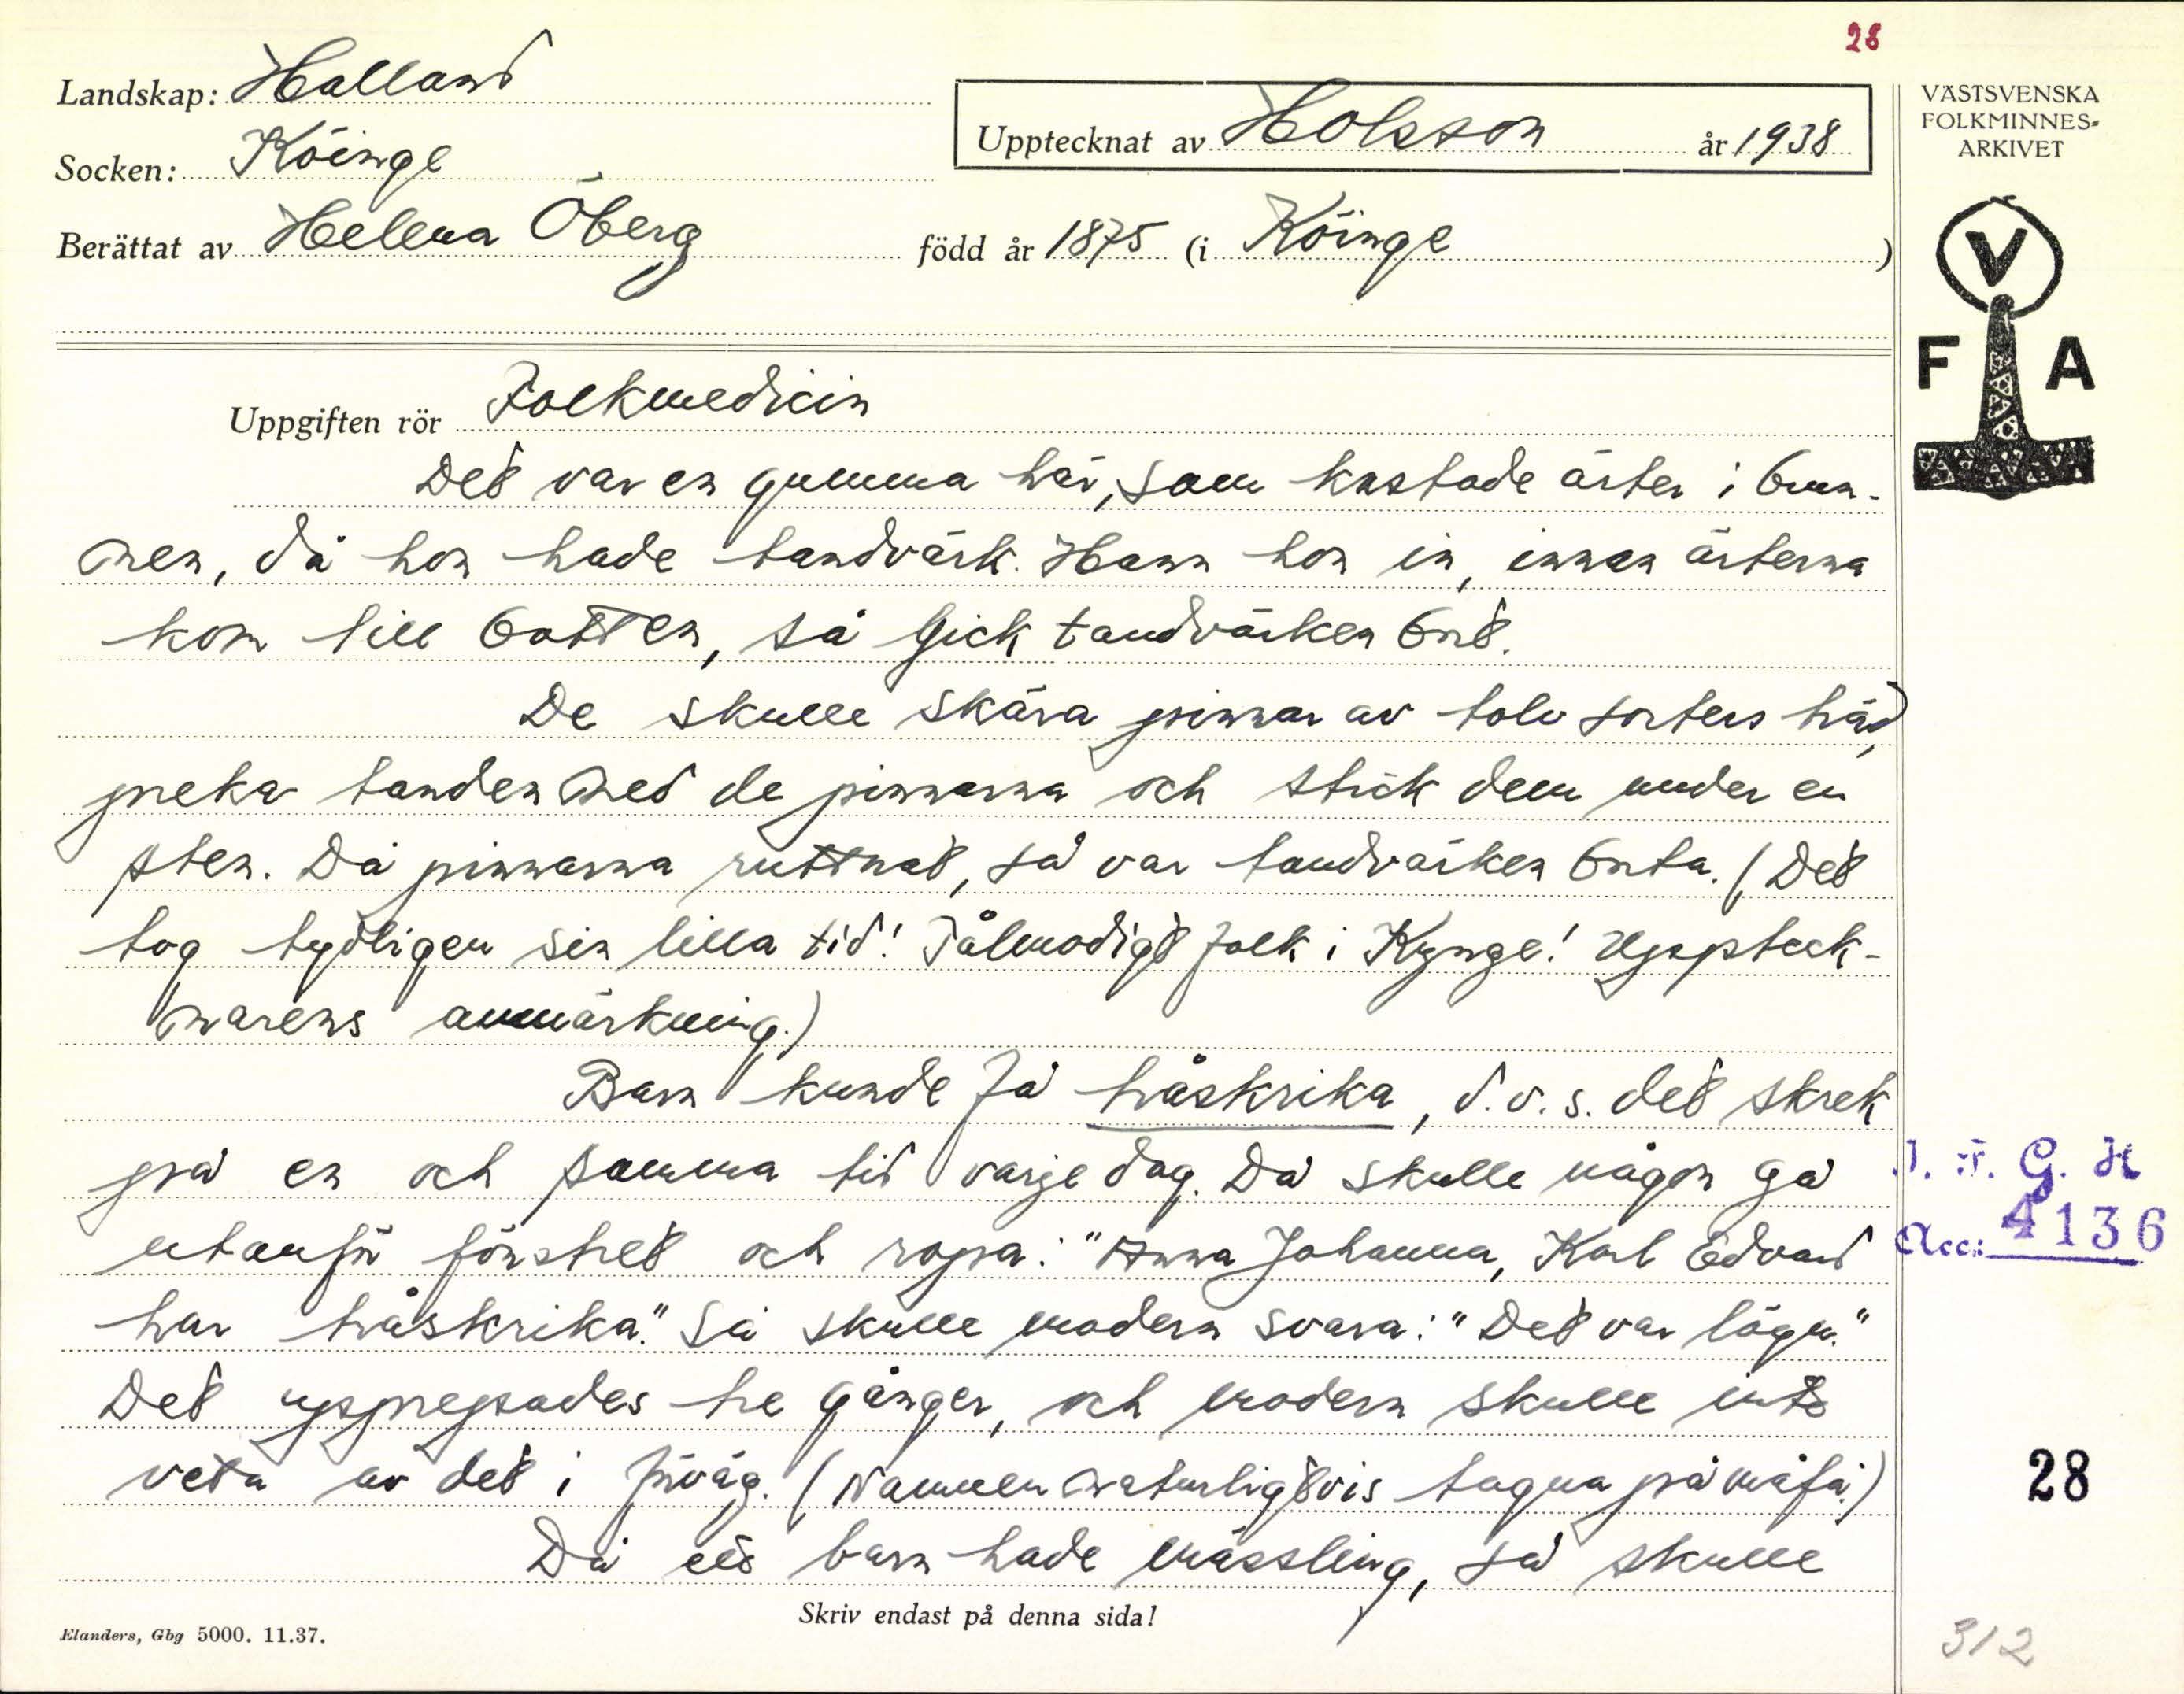 28
Landskap: Halland
Upptecknat av Holsson år 1938
VÄSTSVENSKA
FOLKMINNES-
ARKIVET
Socken: Köinge
Berättat av Helena Öberg född år 1875 (i Köinge)
V
F A
Uppgiften rör Folkmedicin
Det var en gumma här, som kastade ärter i brun-
nen, då hon hade tandvärk. Hann hon in, innan ärterna
kom till botten, så gick tandvärken bort.
De skulle skära pinnar av tolv sorters träd,
peka tanden med de pinnarna och stick dem under en
sten. Då pinnarna ruttnat, så var tandvärken borta. (Det
tog tydligen sin lilla tid! Tålmodigt folk i Kynge! Uppteck-
narens anmärkning.)
Barn kunde få tråskrika, d.v.s. det skrek
på en och samma tid varje dag. Då skulle någon gå
utanför fönstret och ropa: "Anna Johanna, Karl Edvard
har tråskrika." Så skulle modern svara: "Det var lögn."
Det upprepades tre gånger, och modern skulle inte
veta av det i förväg. (Namnen naturligtvis tagna på måfå.)
Då ett barn hade mässling, så skulle
I. F. G. H
Acc: 4136
28
Skriv endast på denna sida!
Elanders, Gbg 5000. 11.37.
312